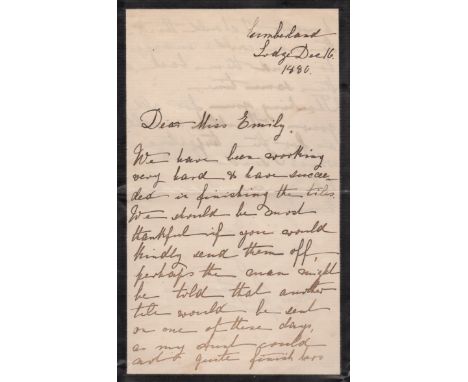 Cumberland
Lodge Dec 16.
1880.
Dear Miss Emily,
We have been working
very hard & have succee-
ded in finishing the tiles.
We should be most
thankful if you would
kindly send them off,
perhaps the man might
be told that another
tile would be sent
on one of these days,
as my aunt could
not quite finish hers